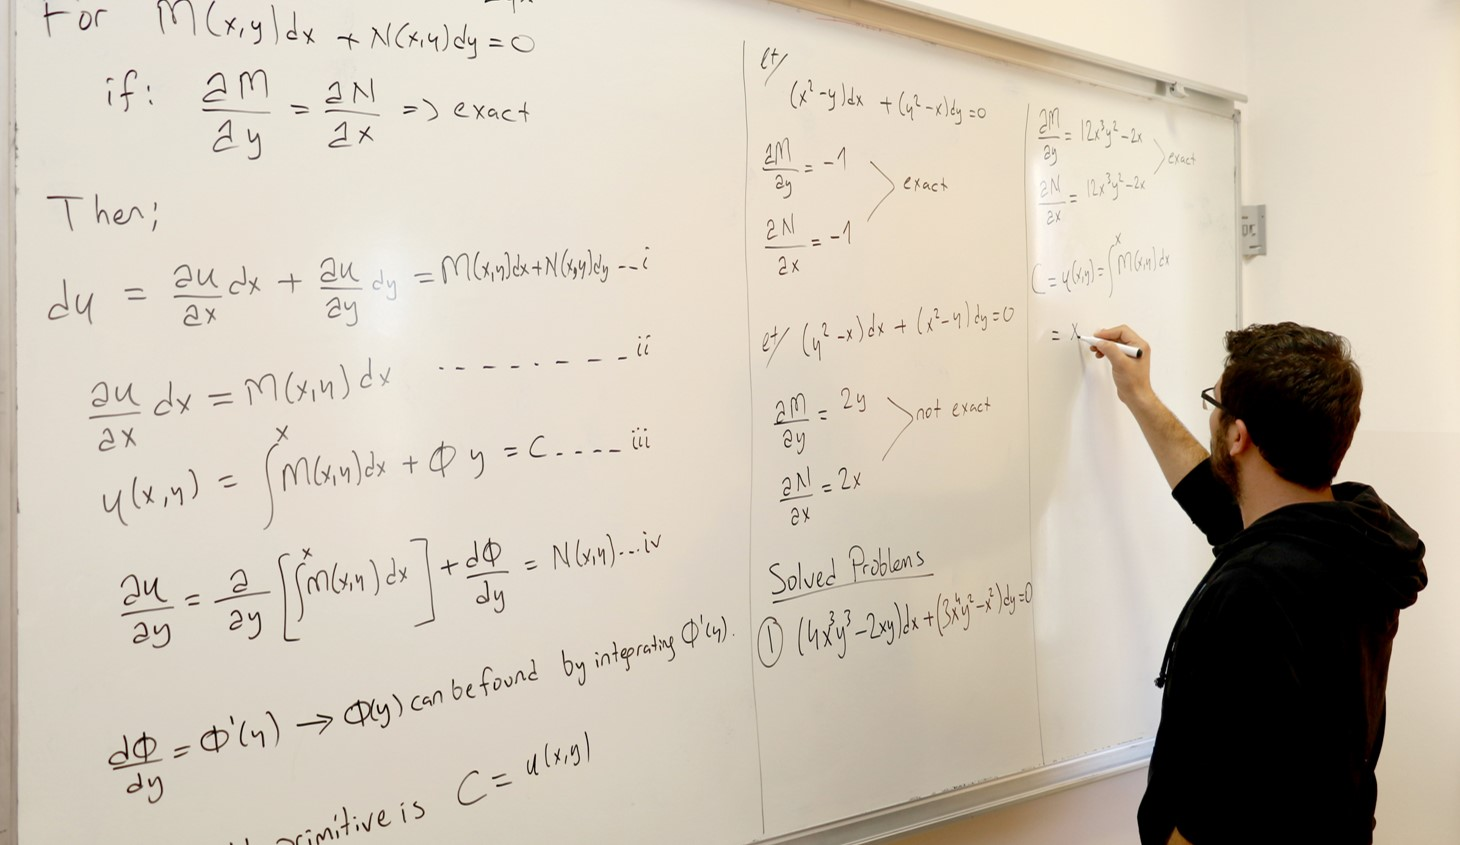 For M(x,y)dx + N(x,y)dy = 0
if: ∂M/∂y = ∂N/∂x => exact
Then;
du = ∂u/∂x dx + ∂u/∂y dy = M(x,y)dx+N(x,y)dy --- i
∂u/∂x dx = M(x,y) dx - - - - - - - - ii
u(x,y) = ∫^x M(x,y)dx + Φ y = C - - - - iii
∂u/∂y = ∂/∂y [∫^x M(x,y) dx] + dΦ/dy = N(x,y) --- iv
dΦ/dy = Φ'(y) → Φ(y) can be found by integrating Φ'(y).
primitive is C = u(x,y)
et/
(x²-y)dx + (y²-x)dy = 0
∂M/∂y = -1
exact
∂N/∂x = -1
et/ (y²-x)dx + (x²-y)dy = 0
∂M/∂y = 2y
not exact
∂N/∂x = 2x
Solved Problems
① (4x³y³-2xy)dx + (3x⁴y²-x²)dy=0
∂M/∂y = 12x³y²-2x
exact
∂N/∂x = 12x³y²-2x
C = u(x,y) = ∫^x M(x,y)dx
= x